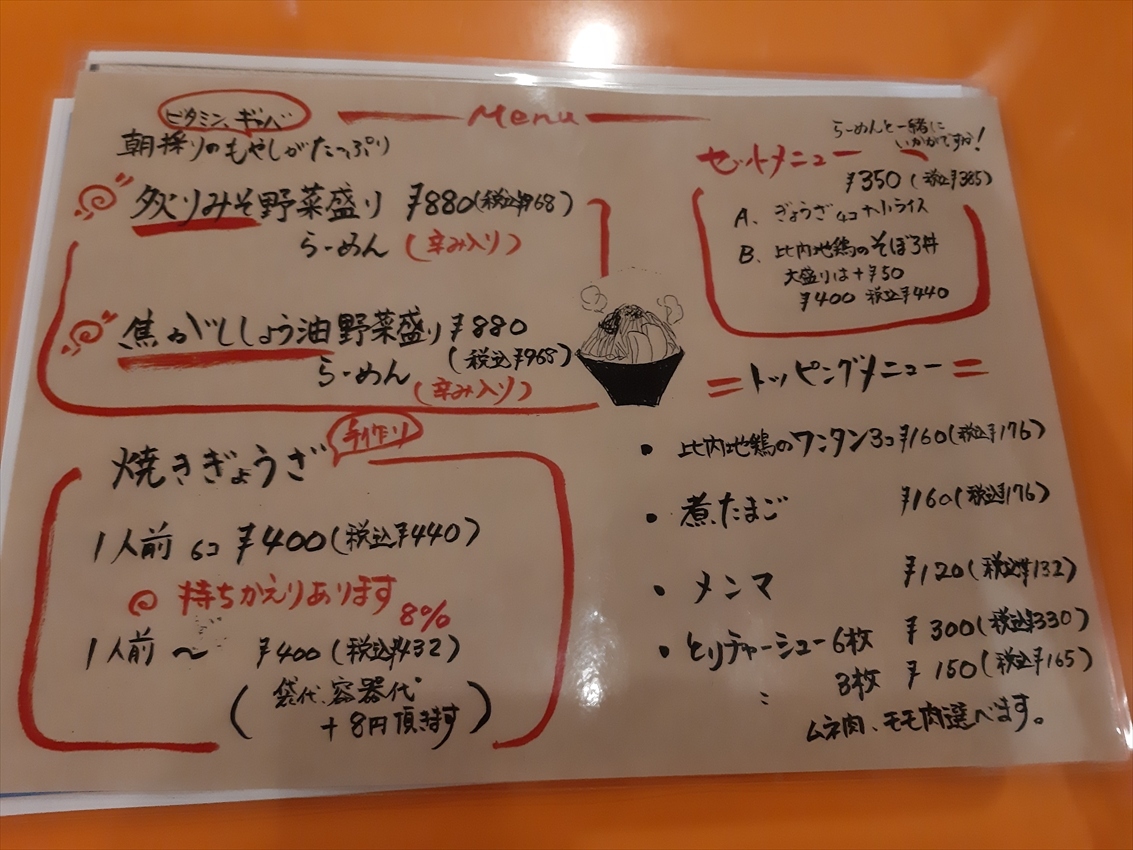 Menu
ビタミン、ギャバ
朝採りのもやしがたっぷり
炙りみそ野菜盛り ¥880(税込¥968)
らーめん (辛み入り)
焦がししょう油野菜盛り ¥880
(税込¥968)
らーめん (辛み入り)
手作り
焼きぎょうざ
1人前 6コ ¥400(税込¥440)
持ちかえりあります
8%
1人前〜 ¥400(税込¥432)
(袋代、容器代
+8円頂きます)
らーめんと一緒に
いかがですか!
セットメニュー
¥350(税込¥385)
A、ぎょうざ4コ+小ライス
B、比内地鶏のそぼろ丼
大盛りは+¥50
¥400 税込¥440
=トッピングメニュー=
・比内地鶏のワンタン3コ ¥160(税込¥176)
・煮たまご ¥160(税込¥176)
・メンマ ¥120(税込¥132)
・とりチャーシュー6枚 ¥300(税込¥330)
〃 3枚 ¥150(税込¥165)
ムネ肉、モモ肉選べます。